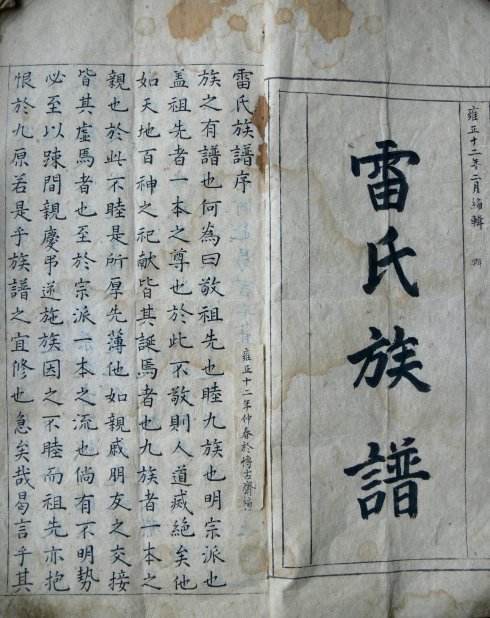 雍正十二年二月編輯
雷氏族譜
雍正十二年仲春於博古齋
雷氏族譜序
族之有譜也何為曰敬祖先也睦九族也明宗派也
蓋祖先者一本之尊也於此不敬則人道滅絕矣他
如天地百神之祀献皆其誕焉者也九族者一本之
親也於此不睦是所厚先薄他如親戚朋友之交接
皆其虛焉者也至於宗派一本之流也倘有不明勢
必至以踈間親慶弔逆施族因之不睦而祖先亦抱
恨於九原若是乎族譜之宜修也急矣哉曷言乎其